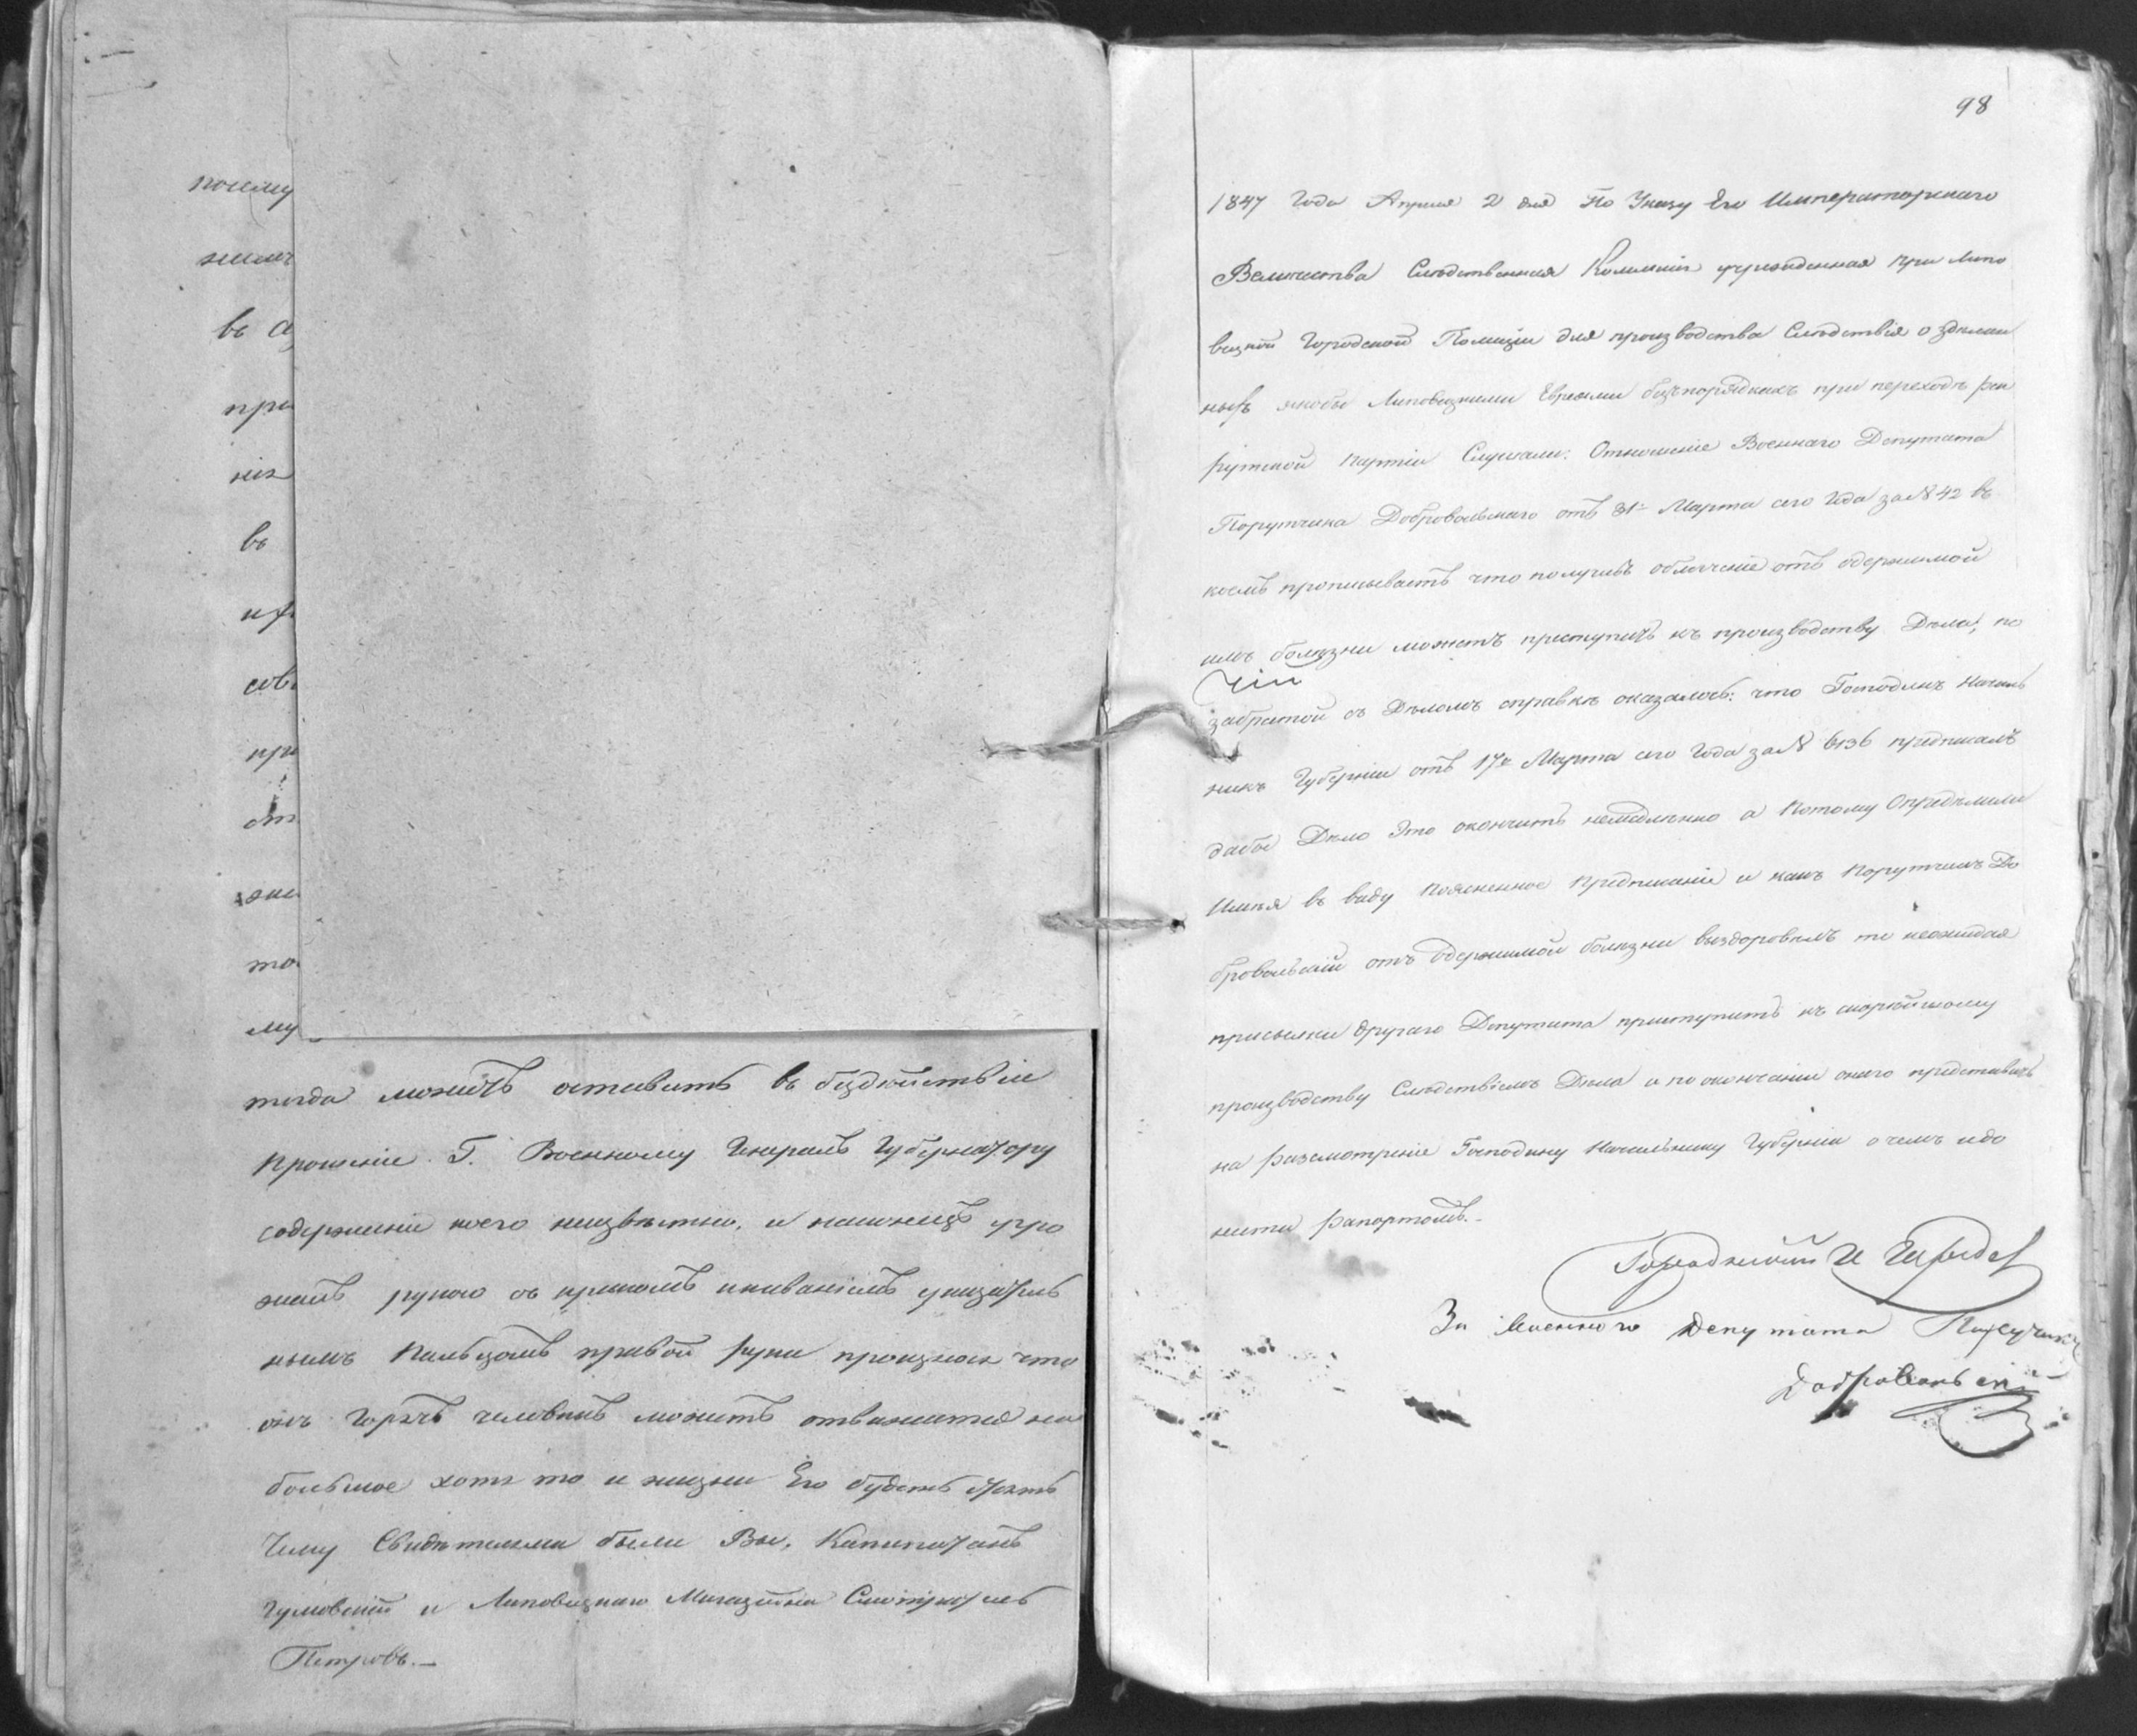 почему
жилъ
въ
при
нія
въ
их
сов
при
от
жи
то
му
тогда можитъ оставить въ бездѣйствіи
прошеніе Г. Военному Генералъ Губернатору
содержаніе коего неизвѣстно, и наконецъ угро
жалъ рукою съ крикомъ и киваніемъ указатель
нымъ пальцомъ правой руки произнося что
онъ горячъ человѣкъ можитъ отважится на
большое хотя то и жизни Его будетъ стоять
Чему Свидѣтельми были Вы, Капитанъ
Гумовскій и Липовецкаго Магазейна Смотритель
Петровъ.—
98
1847 Года Апреля 2 дня По Указу Его Императорскаго
Величества Слѣдственная Комисія учрежденная при Липо
вецкой Городской Полиціи для производства Слѣдствія о здѣлан
ныхъ якобы Липовецкими Евреями безпорядкахъ при переходѣ рек
рутской партіи Слушали: Отношеніе Военнаго Депутата
Порутчика Добровольскаго отъ 31 Марта сего Года за № 42 въ
коемъ прописываетъ что получивъ облегченіе отъ одержимой
имъ болѣзни можетъ приступить къ производству Дѣла; по
забратой съ Дѣломъ справкѣ оказалось: что Господинъ Началь
никъ Губерніи отъ 17 Марта сего Года за № 6136 предписалъ
дабы Дѣло Это окончить немедленно а потому Опредѣлили
Имѣя въ виду поясненное предписаніе и какъ Порутчикъ До
бровольскій отъ одержимой болѣзни выздоровелъ то неожидая
присылки другаго Депутата приступить къ скорѣйшому
производству Слѣдствіемъ Дѣла и по окончаніи онаго представить
на разсмотреніе Господину Начальнику Губерніи о чемъ и до
нести рапортомъ.-
Городничій И
За Военного Депутата Порутчикъ
Добровольскій